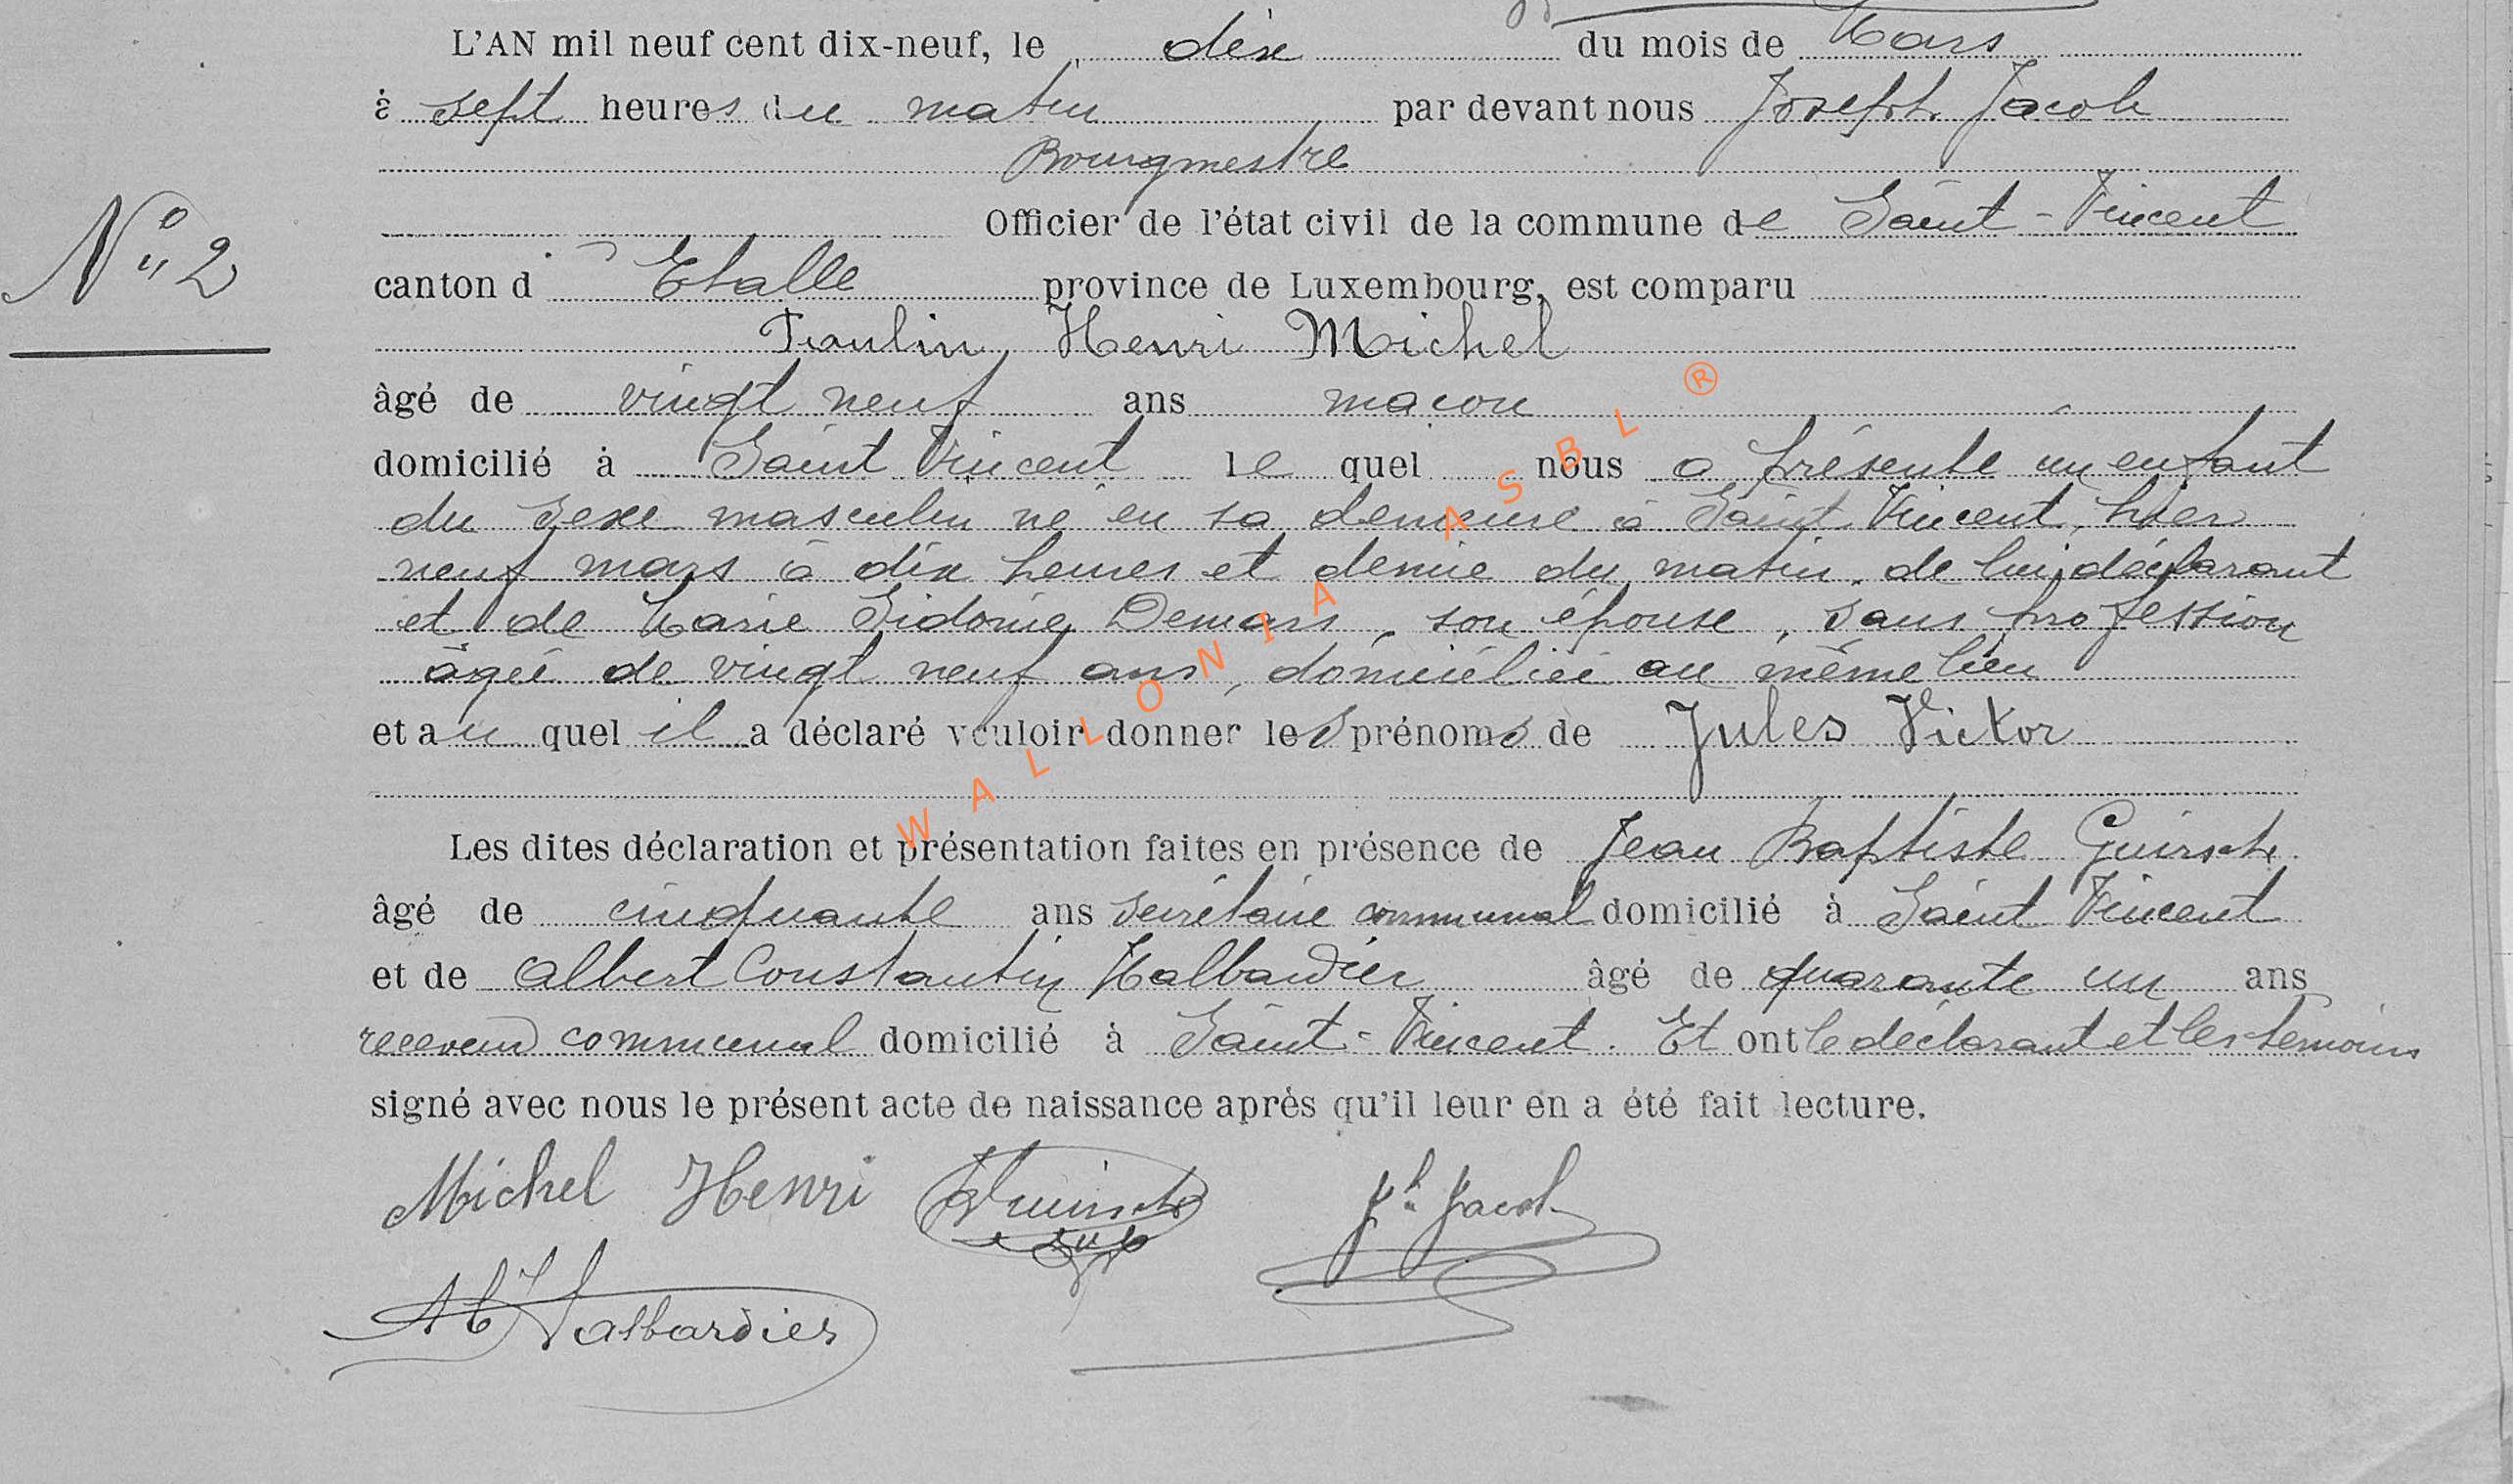 L'AN mil neuf cent dix-neuf, le dix du mois de Mars
à sept heures du matin par devant nous Joseph Jacob
Bourgmestre
Officier de l'état civil de la commune de Saint-Vincent
N° 2
canton d' Etalle province de Luxembourg, est comparu
Paulin, Henri Michel
âgé de vingt neuf ans maçon
domicilié à Saint Vincent le quel nous a présenté un enfant
du sexe masculin né en sa demeure à Saint Vincent, hier
neuf mars à dix heures et demie du matin, de lui déclarant
et de Marie Sidonie Demars, son épouse, sans profession
âgée de vingt neuf ans, domiciliée au même lieu
et au quel il a déclaré vouloir donner les prénoms de Jules Victor
Les dites déclaration et présentation faites en présence de Jean Baptiste Guirsch
âgé de cinquante ans secrétaire communal domicilié à Saint Vincent
et de Albert Constantin Halbardier âgé de quarante un ans
receveur communal domicilié à Saint-Vincent. Et ont le déclarant et les témoins
signé avec nous le présent acte de naissance après qu'il leur en a été fait lecture.
Michel Henri Guirsch Jh Jacob
AC Halbardier
WALLONIA ASBL ®